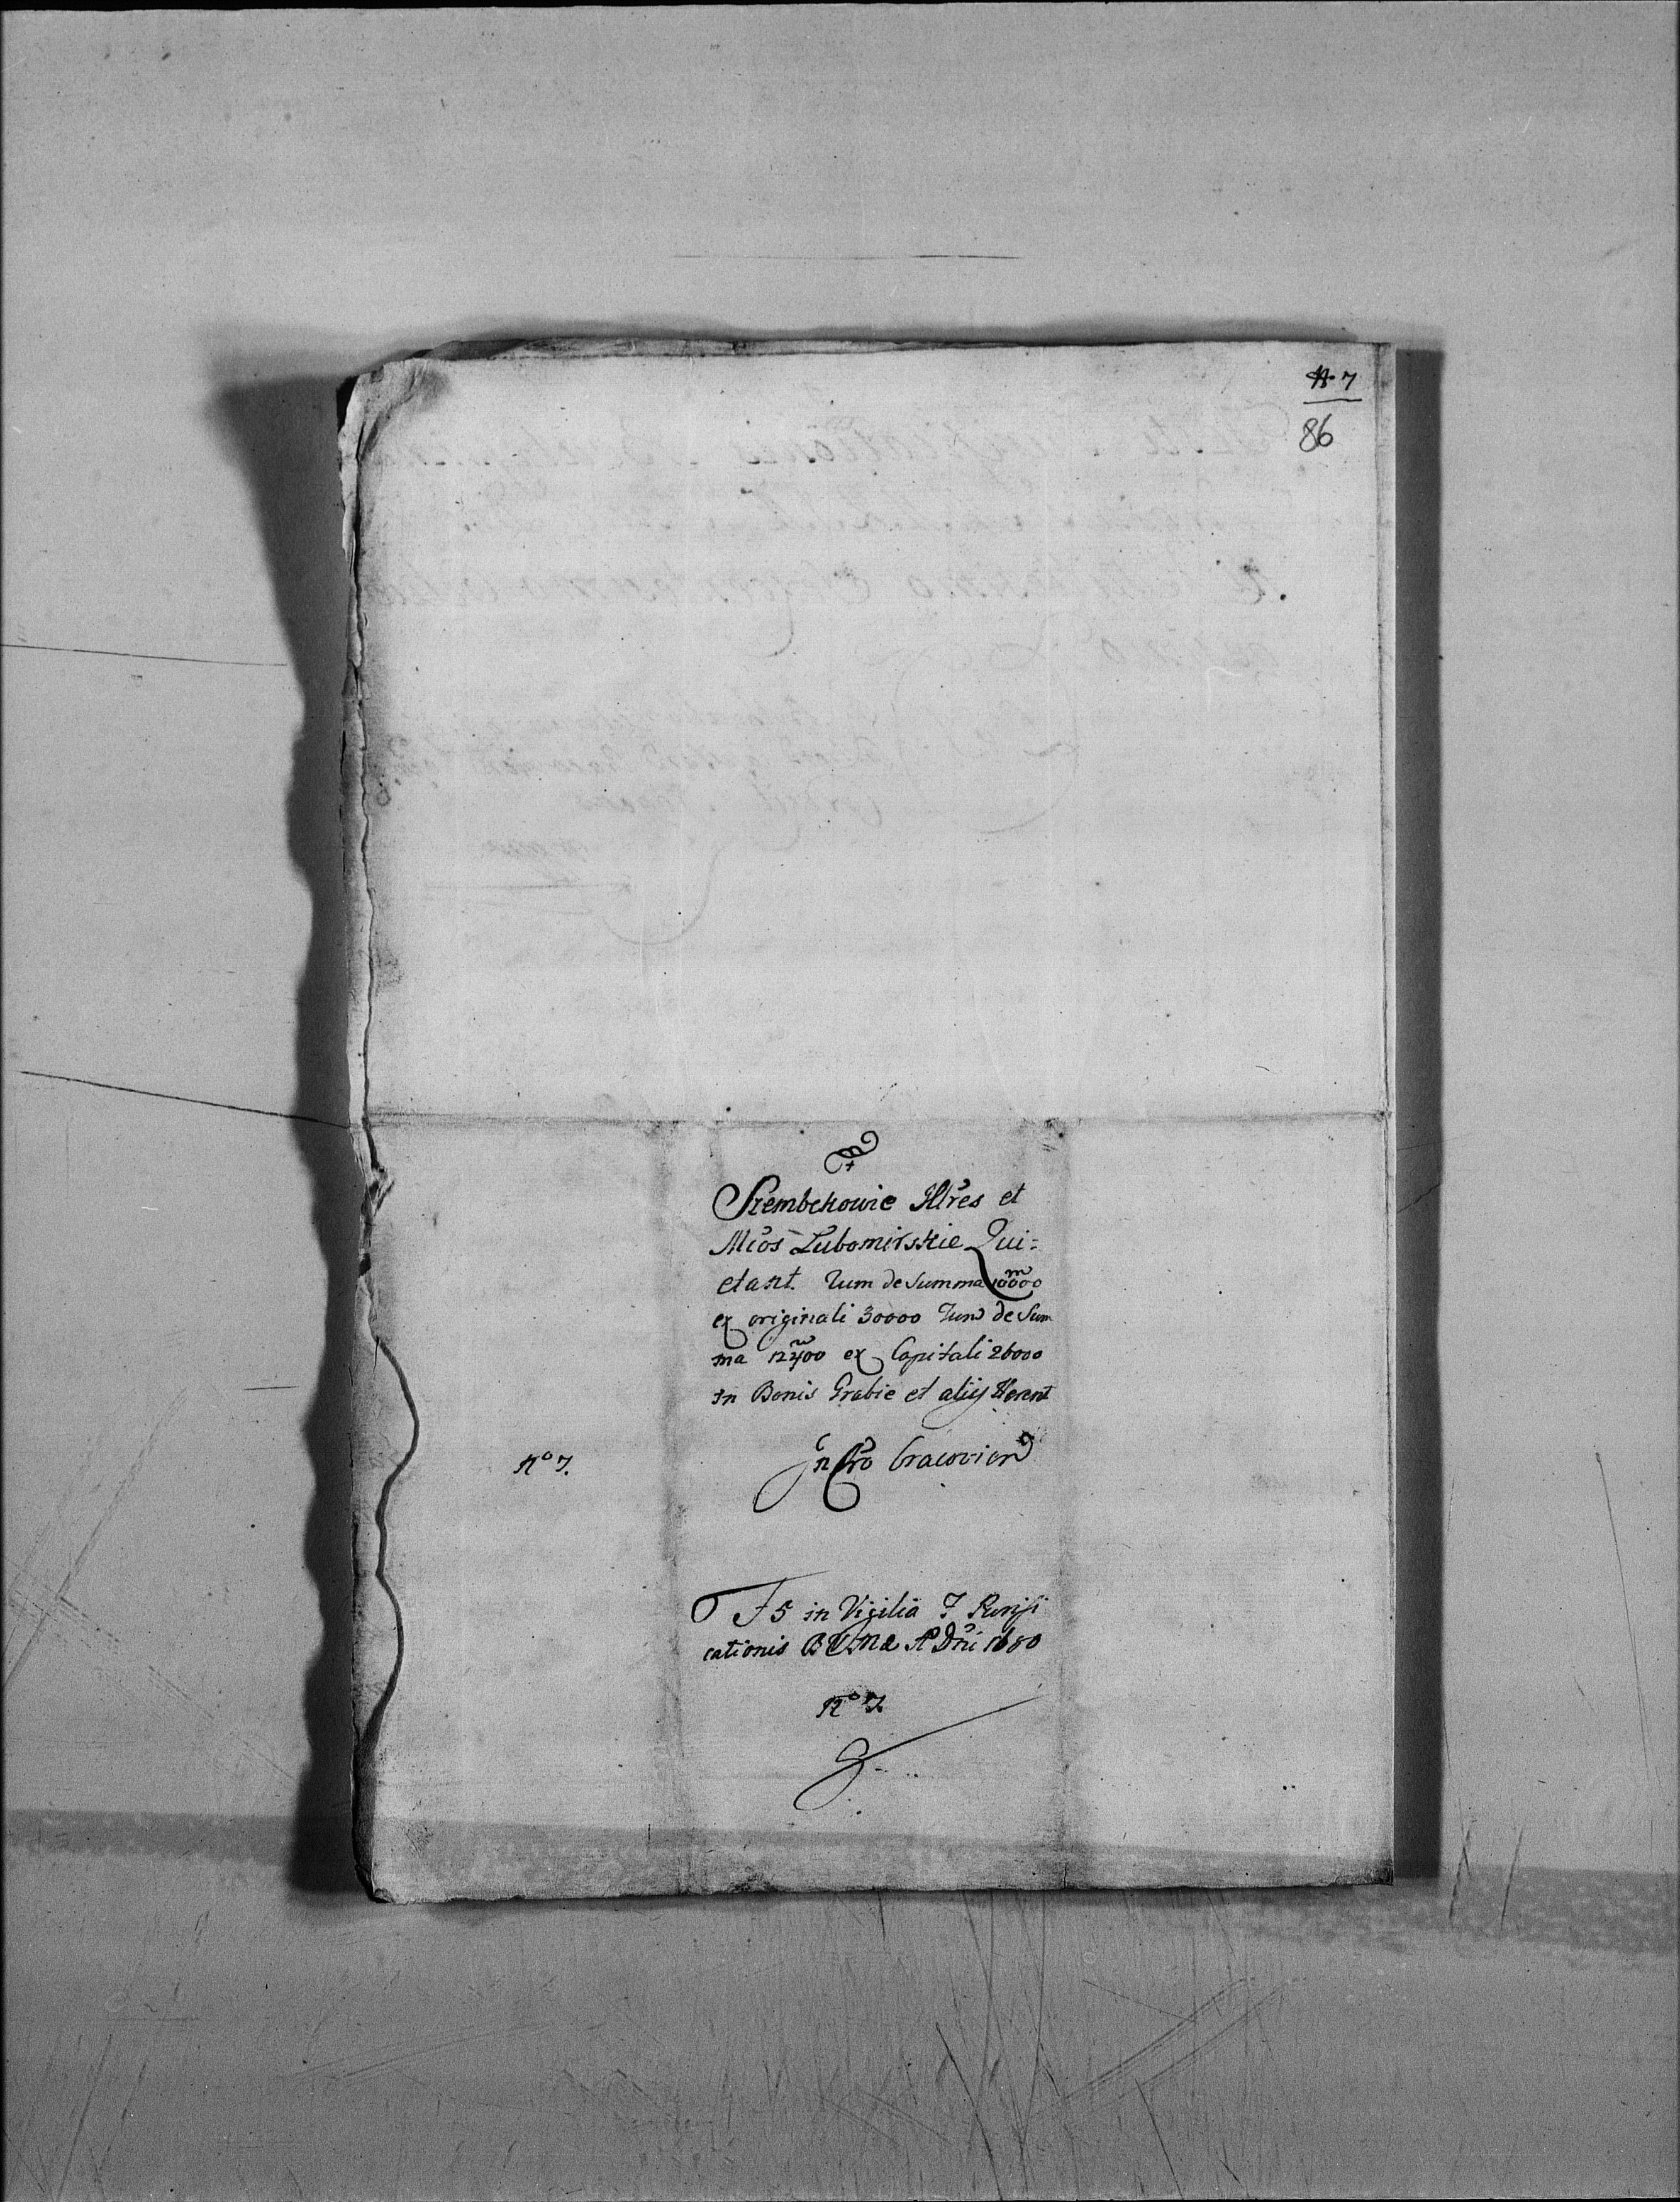 N. 7
86
Szembekowie Illres et
Mcos Lubomirskie Qui=
etant. Tum de Summa 10000
ex originali 30000 Tum de Sum
ma 12400 ex Capitali 26000
in Bonis Grabie et alijs
N° 7.
In Cro Cracovien
F 5 in Vigilia F Purifi
cationis B V Mae A Dni 1680
N° 7.